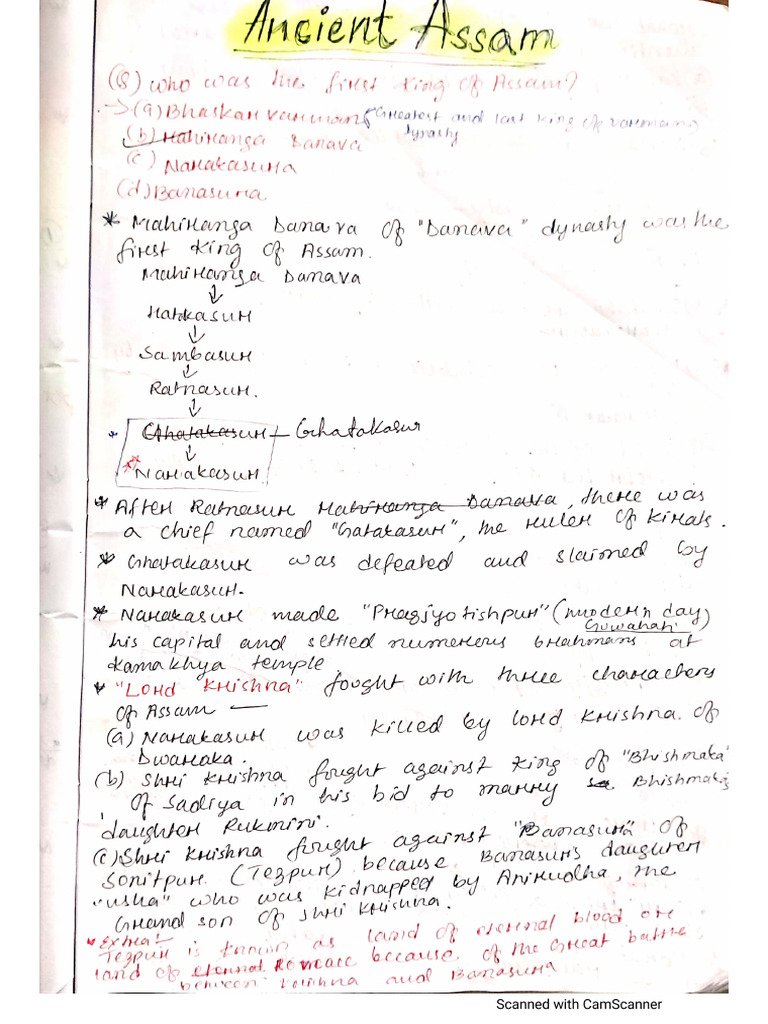 Ancient Assam
(Q) Who was the first king of Assam?
→ (a) Bhaskarvarman { Greatest and last king of varman
dynasty
(b) Mahiranga Danava
(c) Narakasura
(d) Banasura
* Mahiranga Danava of "Danava" dynasty was the
first king of Assam.
Mahiranga Danava
↓
Hatakasur
↓
Sambasur
↓
Ratnasur.
↓
Ghatakasur — Ghatakasur
↓
Narakasur
* After Ratnasur Mahiranga Danava, there was
a chief named "Gatakasur", the ruler of Kirats.
* Ghatakasur was defeated and slained by
Narakasur.
* Narakasur made "Pragjyotishpur" (modern day)
Guwahati
his capital and settled numerous brahmans at
Kamakhya temple.
* "Lord Krishna" fought with three characters
of Assam —
(a) Narakasur was killed by lord Krishna of
Dwaraka.
(b) Shri Krishna fought against King of "Bhishmaka"
of Sadiya in his bid to marry Bhishmaka's
daughter Rukmini.
(c) Shri Krishna fought against "Banasura" of
Sonitpur (Tezpur) because Banasur's daughter
"usha" who was kidnapped by Anirudha, the
Grand son of Shri Krishna.
* Extra!
Tezpur is known as land of eternal blood or
land of eternal romance because of the Great battle
between Krishna and Banasura
Scanned with CamScanner